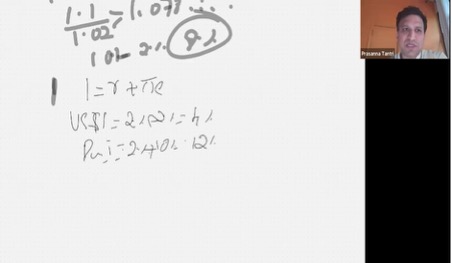 1.1
1.02 = 1.078...
10% - 2% 8%
I = r + πe
US$I = 2% + 2% = 4%
I = 2% + 10% = 12%
Prasanna Tantri